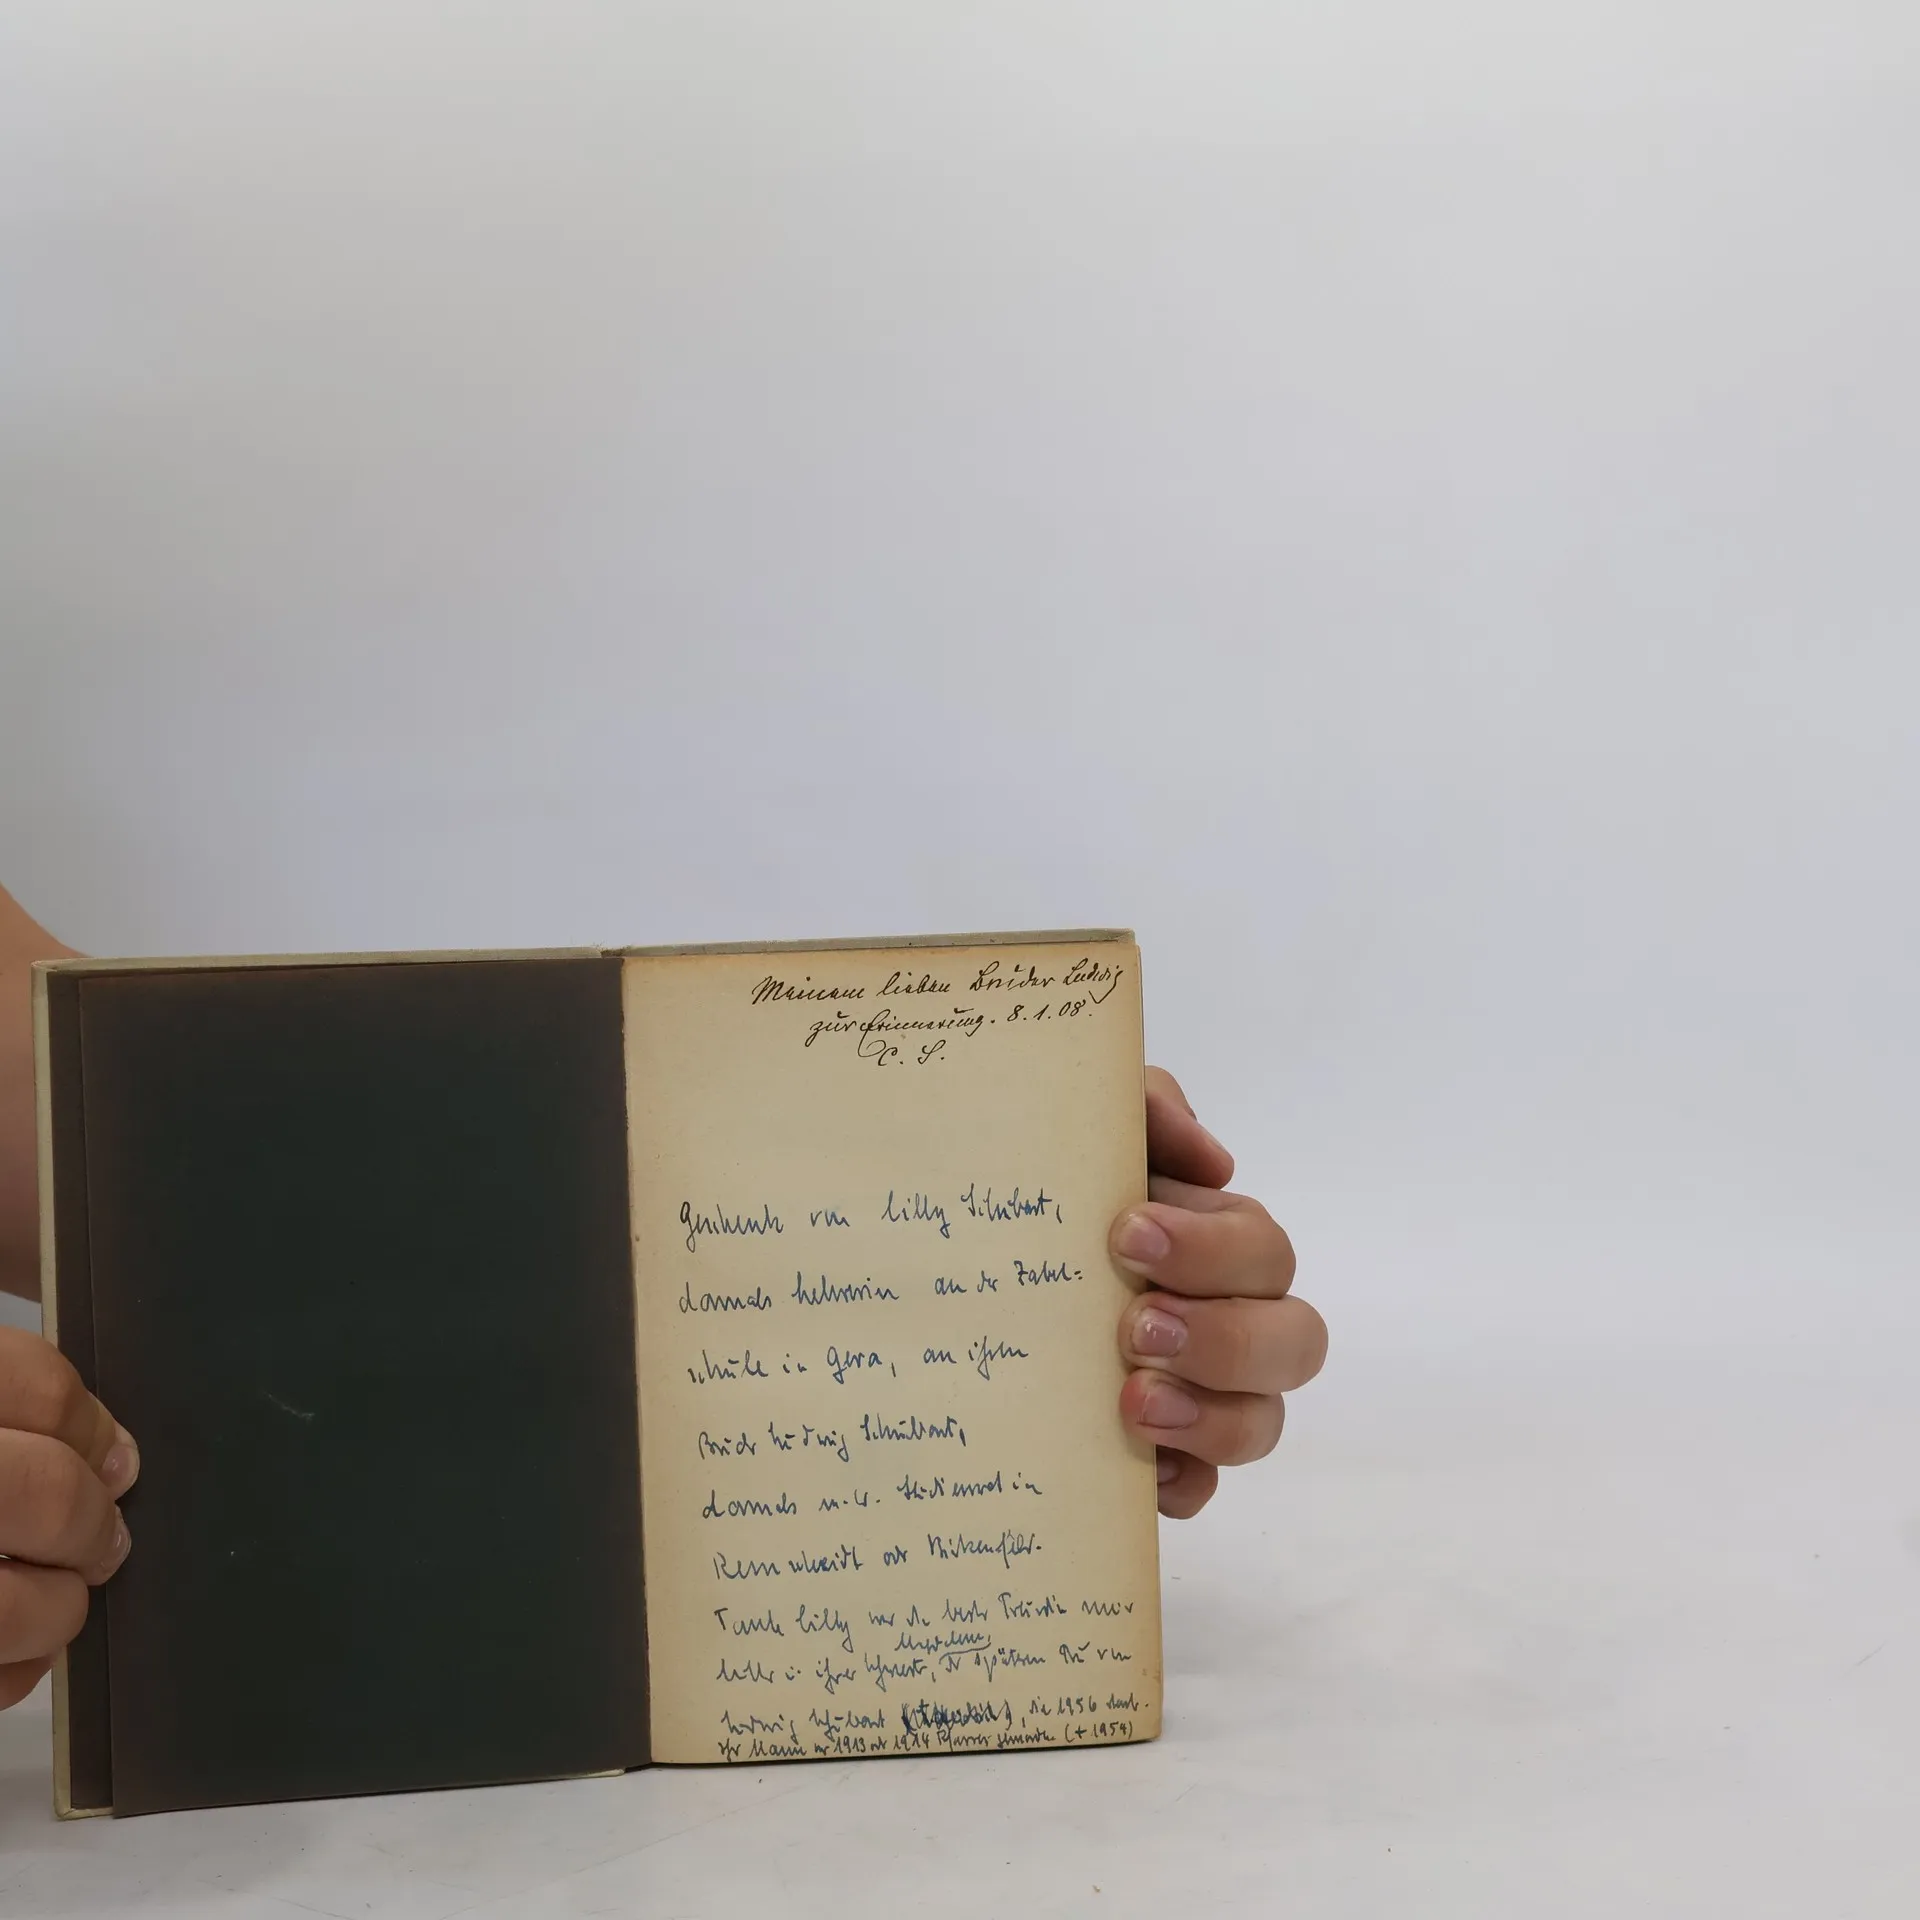 Meinem lieben Bruder Ludwig
zur Erinnerung. 8.1.08.
C. S.
Geschenk von Lilly Schubart,
damals Lehrerin an der Zabel=
schule in Gera, an ihren
Bruder Ludwig Schubart,
damals Studienrat in
Remscheidt oder Birkenfeld.
Tante Lilly war die beste Freundin meiner
Mutter u. ihrer Schwester, der späteren Frau von
Ludwig Schubart, die 1956 starb.
Ihr Mann 1913 od 1914 Pfarrer (+ 1954)